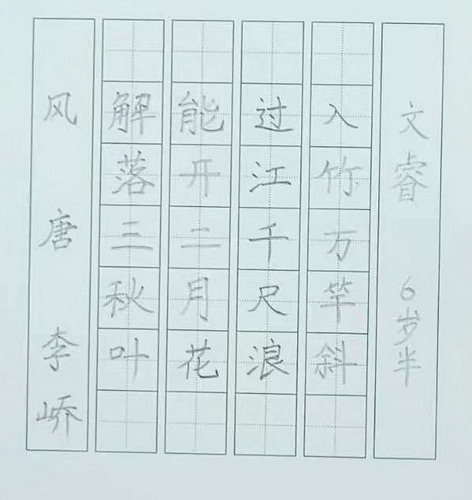 风 唐 李峤
解落三秋叶
能开二月花
过江千尺浪
入竹万竿斜
文睿 6岁半